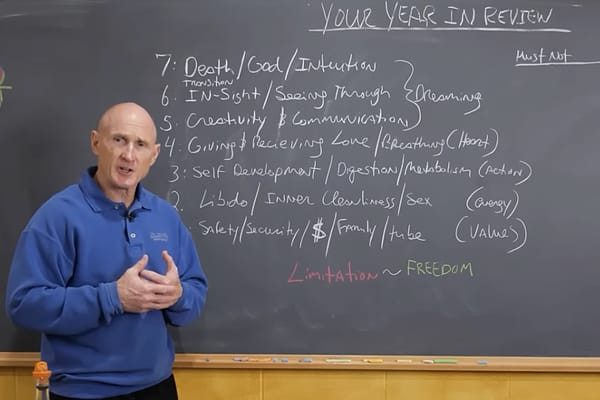 YOUR YEAR IN REVIEW
Must Not
7: Death/God/Intuition
Transition
6. IN-Sight/Seeing Through
Dreaming
5. Creativity & Communication
4. Giving & Recieving Love/Breathing (Heart)
3: Self Development/Digestion/Metabolism (Action)
2. Libido/Inner Cleanliness/Sex (Energy)
Safety/Security/$/Family/tribe (Values)
Limitation ~ FREEDOM